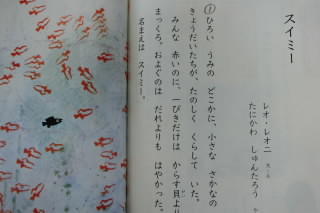 スイミー
レオ・レオニ
たにかわ しゅんたろう
①ひろい うみの どこかに、小さな さかなの
きょうだいたちが、たのしく くらして いた。
みんな 赤いのに、一ぴきだけは からす貝より
まっくろ。およぐのは だれよりも はやかった。
名まえは スイミー。